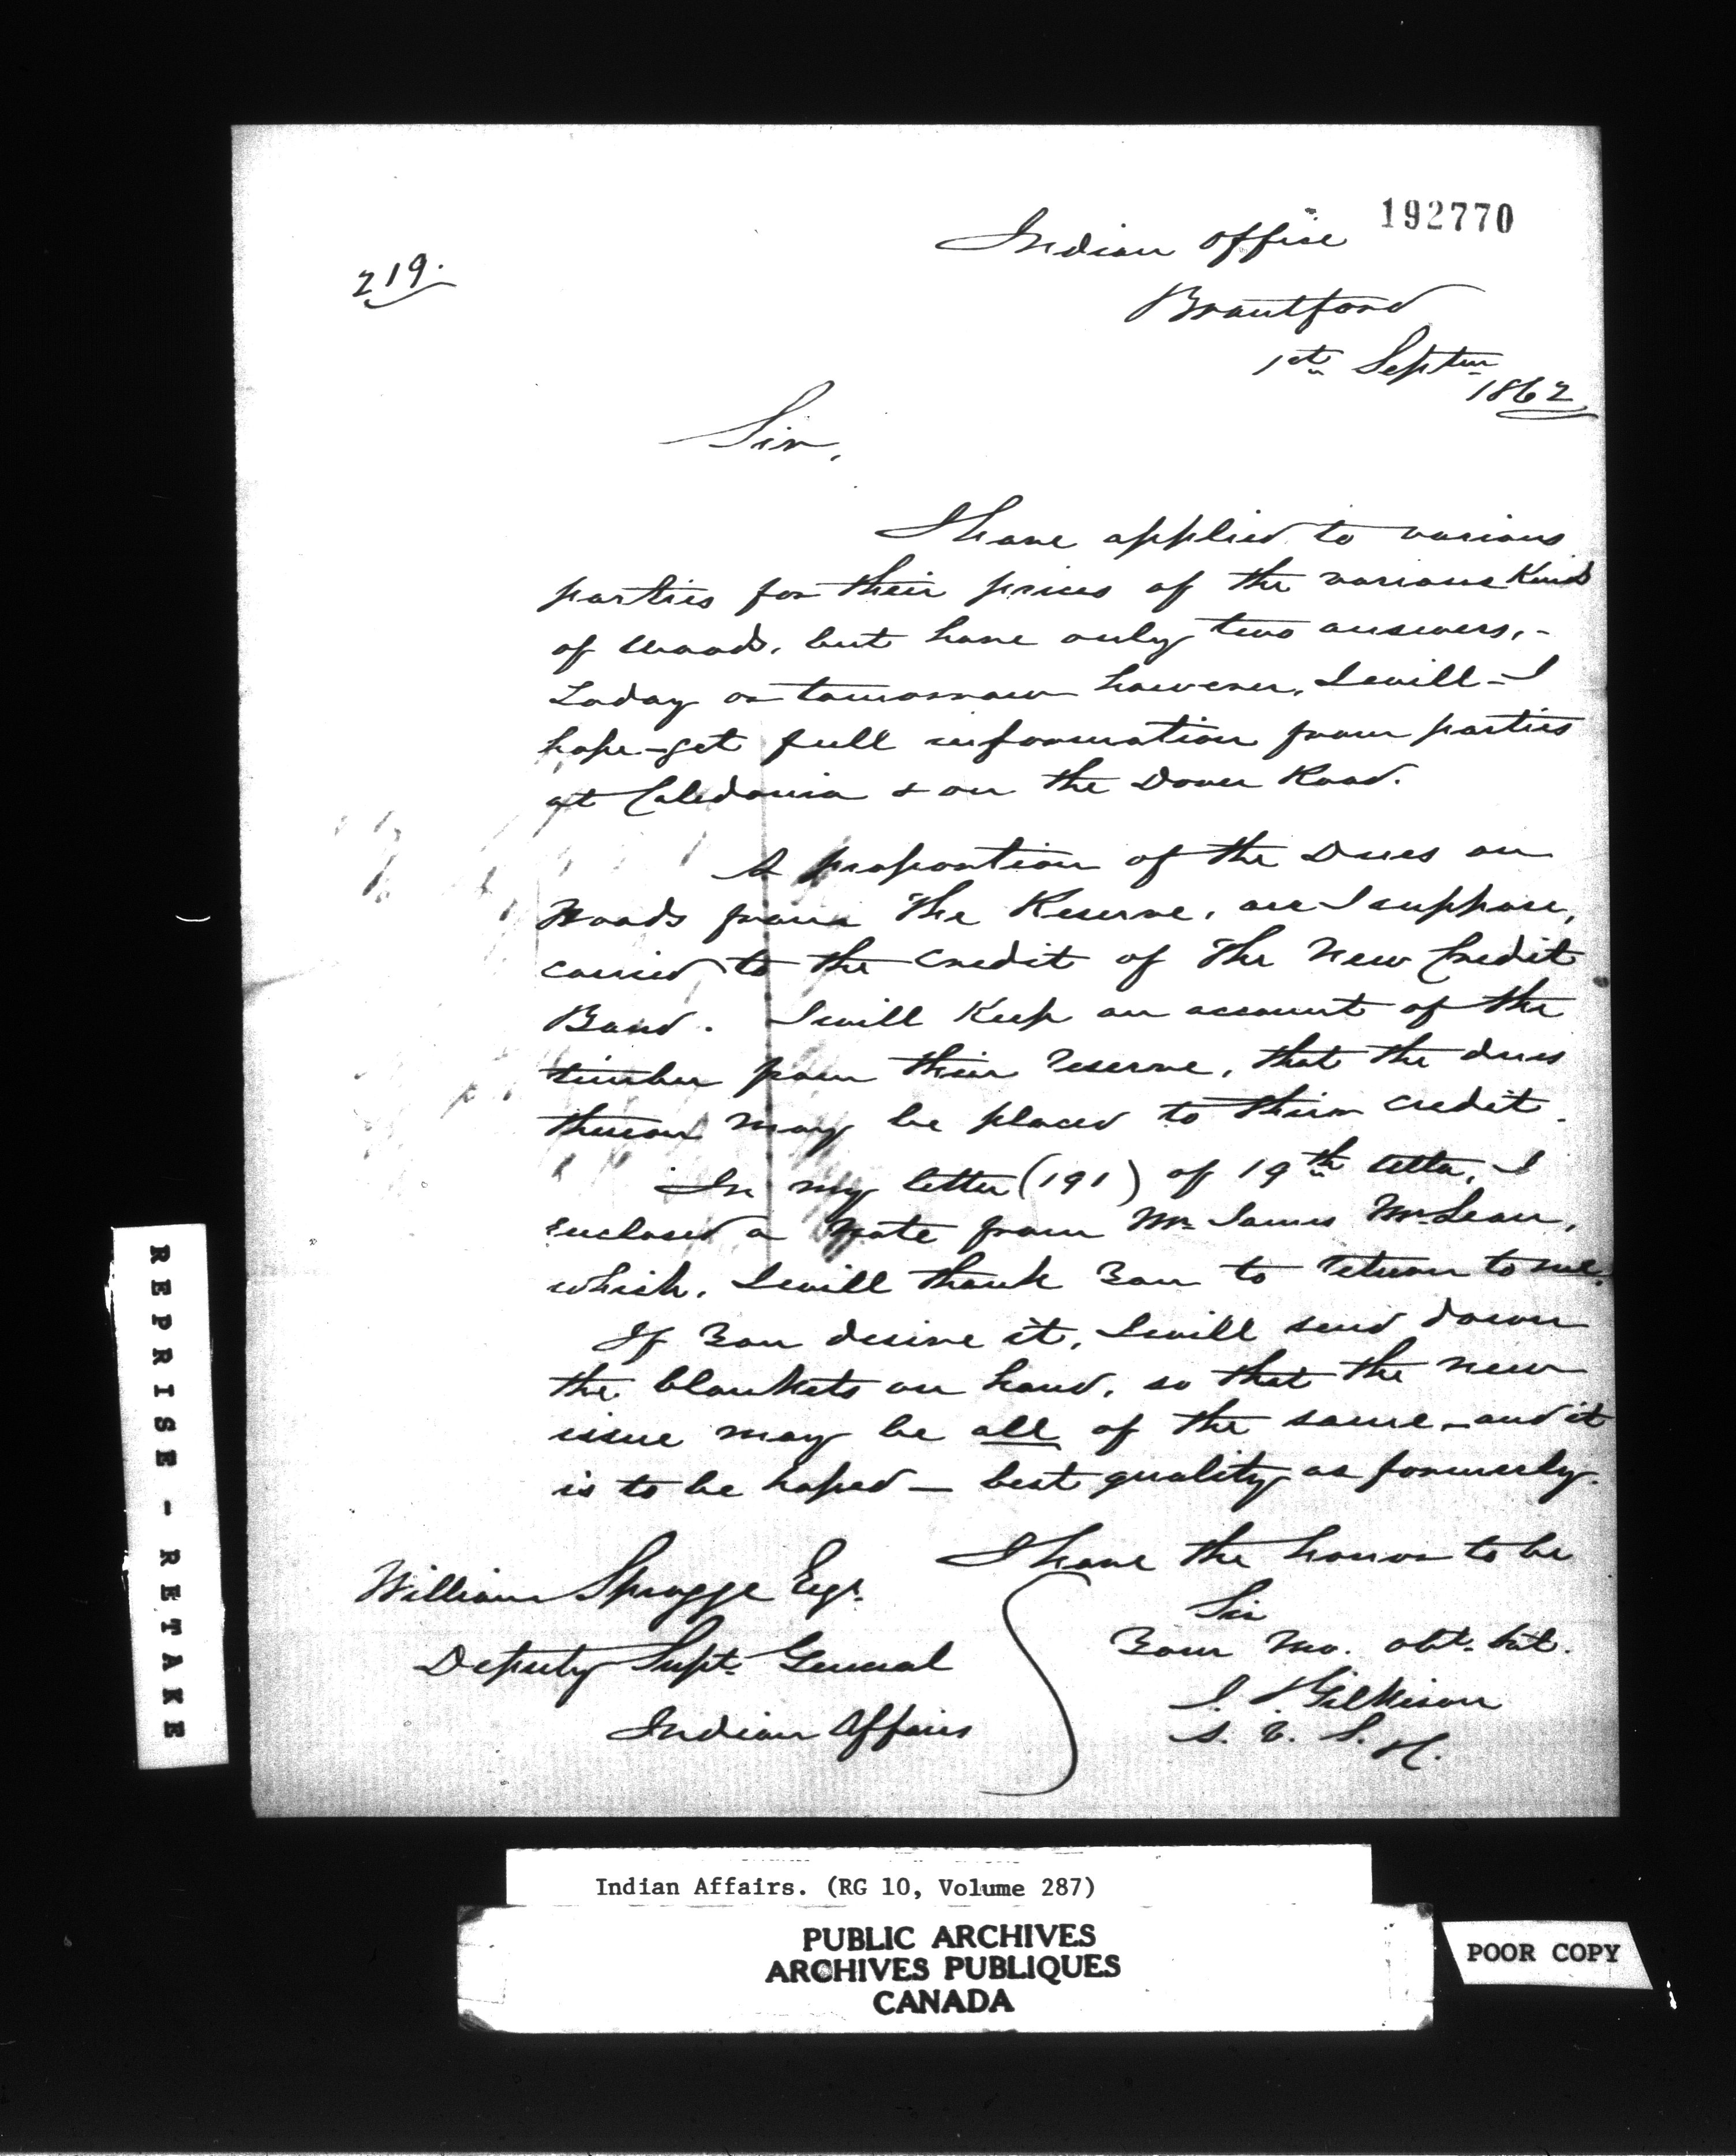 192770
219.
Indian Office
Brantford
1st Septem
1862
Sir,
I have applied to various
parties for their prices of the various kinds
of woods, but have only two answers,-
Today or tomorrow however, I will - I
hope - get full information from parties
at Caledonia & on the Dover Road.
A proportion of the Dues on
Woods from the Reserve, are I suppose,
carried to the credit of the New Credit
Band. I will keep an account of the
timber from their reserve, that the dues
thereon may be placed to their credit.
In my letter (191) of 19th ulto, I
enclosed a note from Mr James McLean,
which, I will thank You to return to me.
If You desire it, I will send down
the blankets on hand, so that the new
issue may be all of the same - and it
is to be hoped - best quality as formerly.
I have the honor to be
Sir
Your Mo. obt. Svt.
J. Gilkison
William Spragge Esqr.
Deputy Supt. General
Indian Affairs
REPRISE - RETAKE
Indian Affairs. (RG 10, Volume 287)
PUBLIC ARCHIVES
ARCHIVES PUBLIQUES
CANADA
POOR COPY